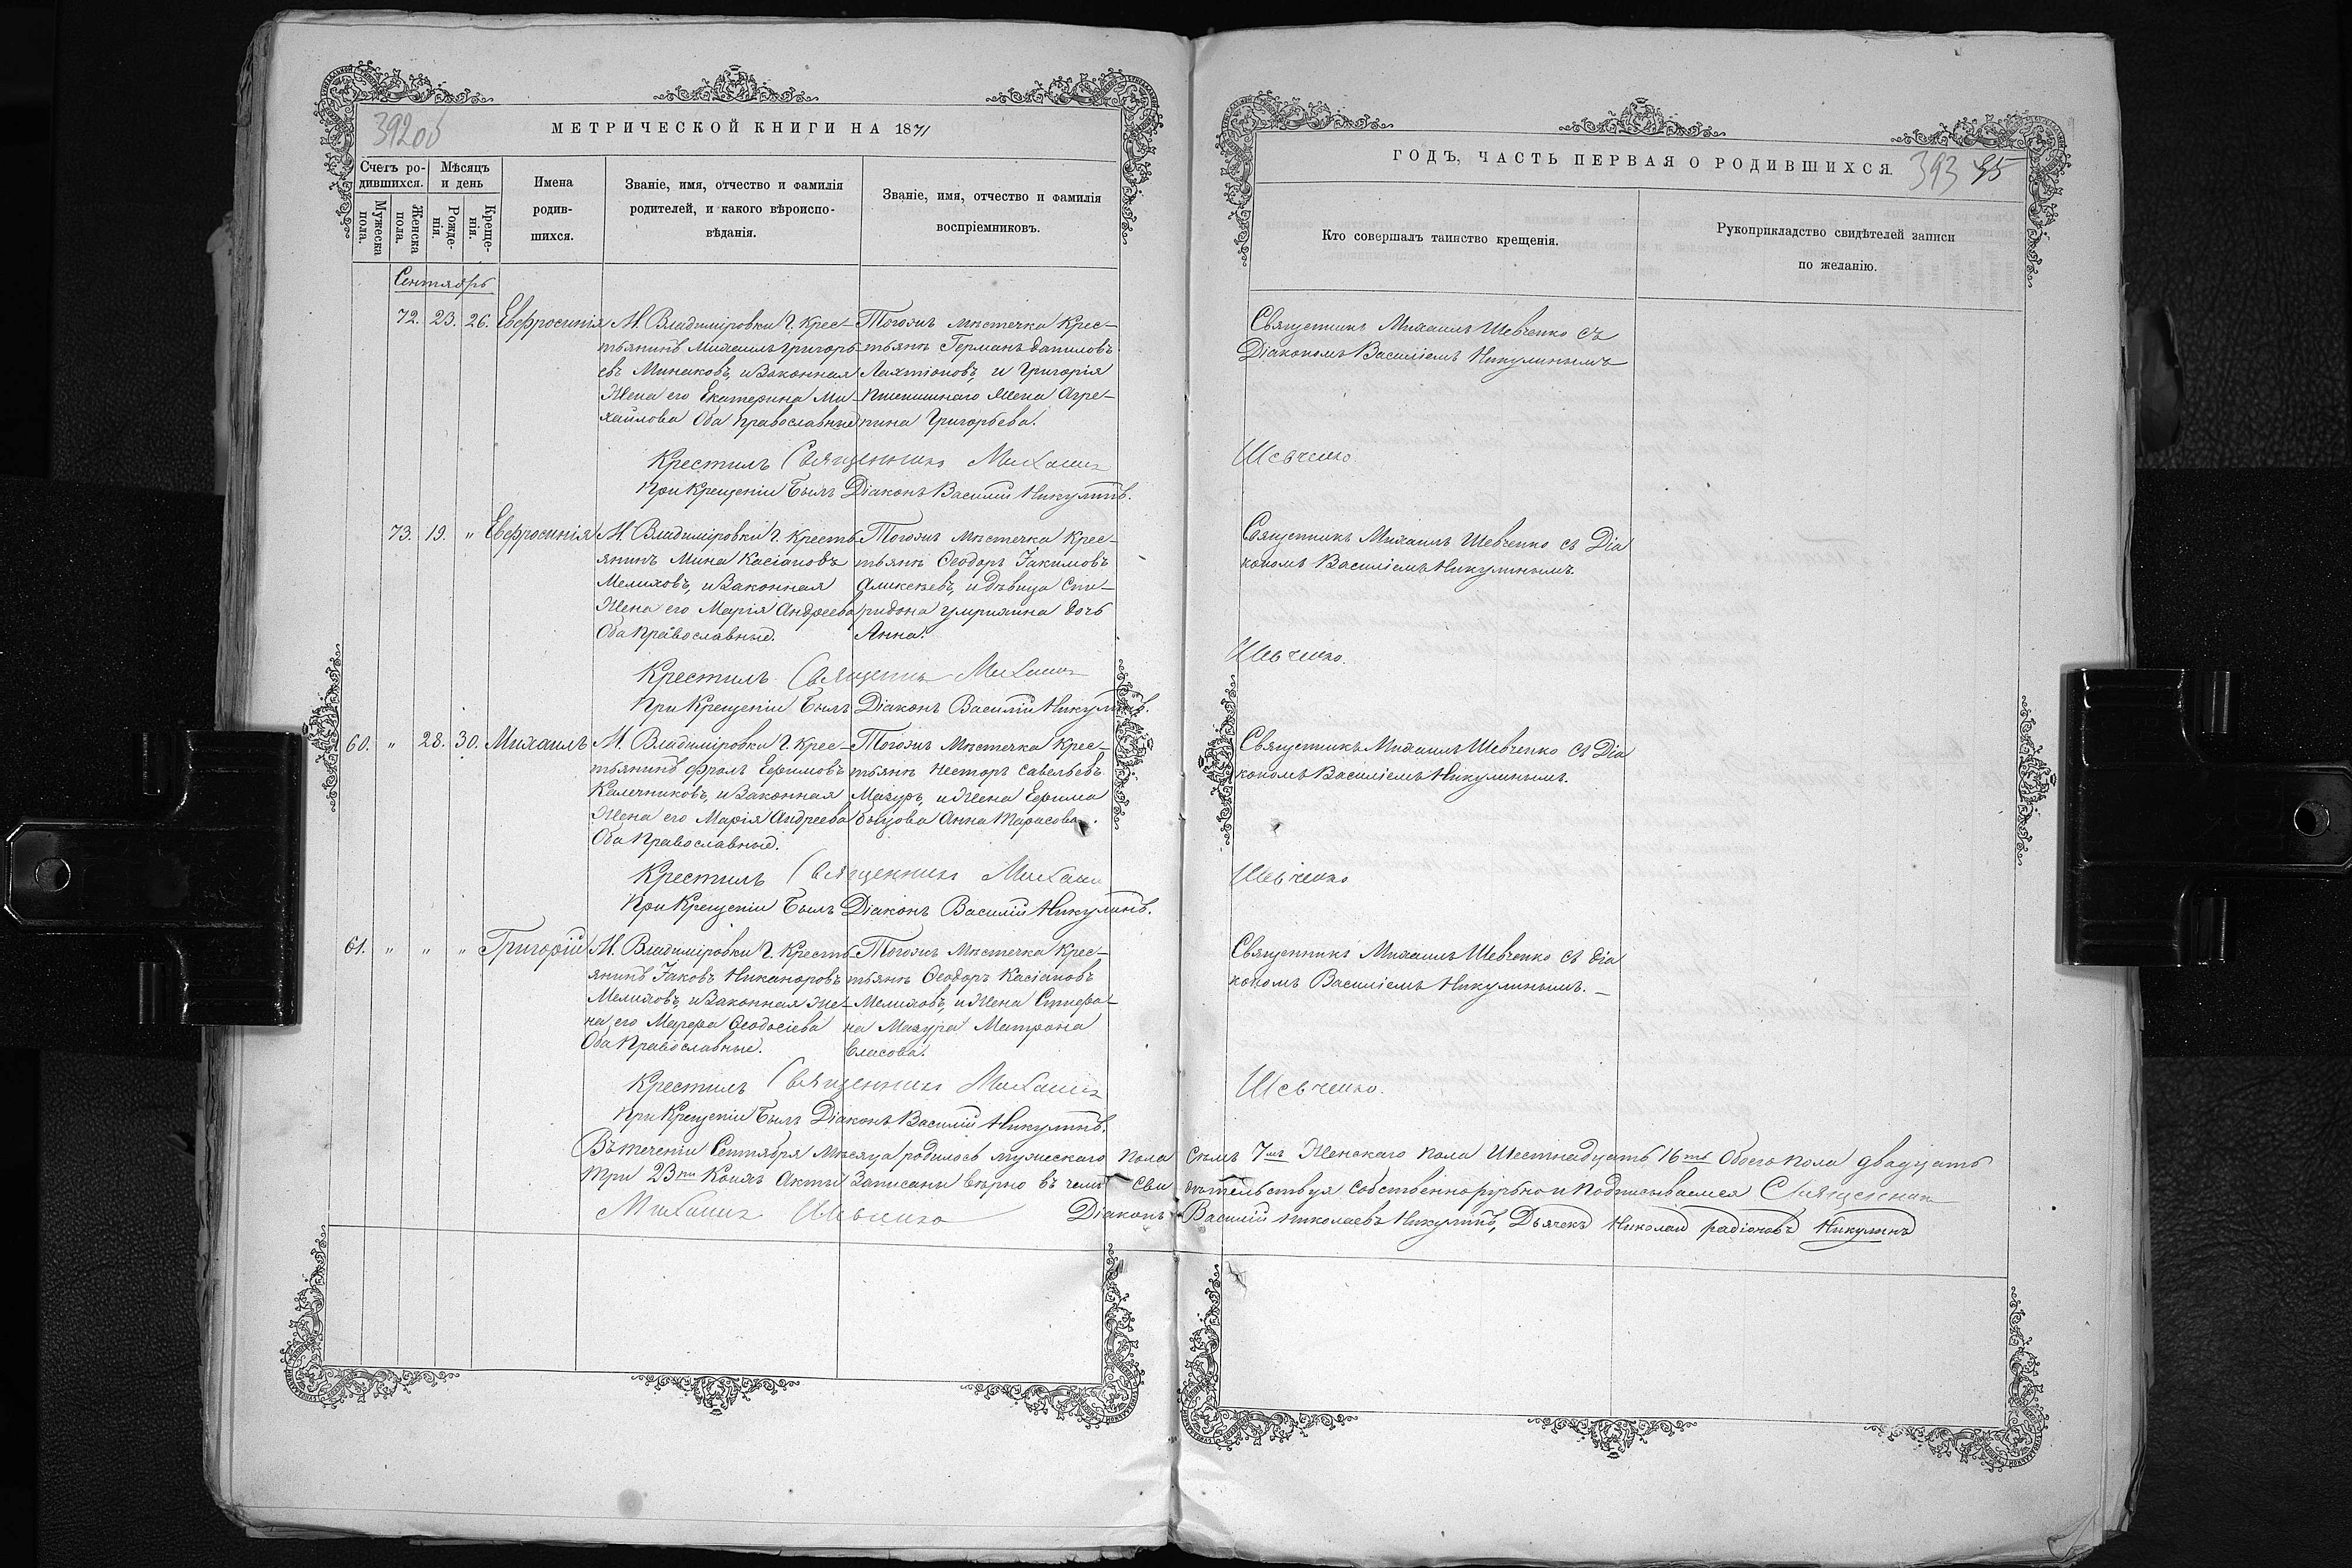 392об
МЕТРИЧЕСКОЙ КНИГИ НА 1871
Счетъ ро-
дившихся.
Мѣсяцъ
и день
Мужеска
пола.
Женска
пола.
Рожде-
нія.
Креще-
нія.
Имена
родив-
шихся.
Званіе, имя, отчество и фамилія
родителей, и какого вѣроиспо-
вѣданія.
Званіе, имя, отчество и фамилія
воспріемниковъ.
Сентябрь
72. 23. 26. Евфросинія
М. Владиміровки Г. Крес-
тьянинъ Михаилъ Григорь-
евъ Минаковъ, и Законная
Жена его Екатерина Ми-
хайлова Оба православные
Тогожъ мѣстечка Крес-
тьянъ Германъ Даниловъ
Лахтіоновъ, и Григорія
Пшеншнаго Жена Агре-
пина Григорьева.
Крестилъ Священникъ Михаилъ
При Крещеніи Былъ Діаконъ Василій Никулинъ.
73. 19. " Евфросинія
М. Владиміровки Г. Кресть-
янинъ Мина Касіановъ
Мелиховъ, и Законная
Жена его Марія Андреева
Оба Православные.
Тогожъ мѣстечка Крес-
тьянъ Ѳеодоръ Іакимовъ
и дѣвица Спи-
ридона дочь
Анна.
Крестилъ Священикъ Михаилъ
При Крещеніи Былъ Діаконъ Василій Никулинъ.
60. " 28. 30. Михаилъ
М. Владиміровки Г. Крес-
тьянинъ Фролъ Ефимовъ
Калечниковъ, и Законная
Жена его Марія Андреева
Оба Православные.
Тогожъ Мѣстечка Крес-
тьянъ Несторъ Савельевъ
Мазуръ, и Жена Ефима
Бызова Анна Тарасова.
Крестилъ Священникъ Михаилъ
При Крещеніи Былъ Діаконъ Василій Никулинъ.
61. " " " Григорій
М. Владиміровки Г. Кресть-
янинъ Іаковъ Никаноровъ
Мелиховъ, и Законная Же-
на его Марфа Ѳеодосіева
Оба Православные.
Тогожъ Мѣстечка Крес-
тьянъ Ѳеодоръ Касіановъ
Мелиховъ, и Жена Стефа-
на Мазура Матрона
Власова.
Крестилъ Священникъ Михаилъ
При Крещеніи Былъ Діаконъ Василій Никулинъ.
ГОДЪ, ЧАСТЬ ПЕРВАЯ О РОДИВШИХСЯ.
393 95
Кто совершалъ таинство крещенія.
Рукоприкладство свидѣтелей записи
по желанію.
Священникъ Михаилъ Шевченко съ
Діакономъ Василіемъ Никулинымъ
Шевченко
Священникъ Михаилъ Шевченко съ Діа
кономъ Василіемъ Никулинымъ.
Шевченко.
Священникъ Михаилъ Шевченко съ Діа
кономъ Василіемъ Никулинымъ.
Шевченко
Священникъ Михаилъ Шевченко съ діа
кономъ Василіемъ Никулинымъ.
Шевченко.
Въ теченіи Сентября Мѣсяца родилось мужескаго пола Семъ 7мъ Женскаго пола Шестнадцать 16ть Обоего пола двадцать
три 23ри Коихъ Акты Записаны вѣрно въ чемъ Сви дѣтельствуя собственноручно и подписываемся Священникъ
Михаилъ Шевченко Діаконъ Василій Николаевъ Никулинъ, Дьячекъ Николай радіоновъ Никулинъ